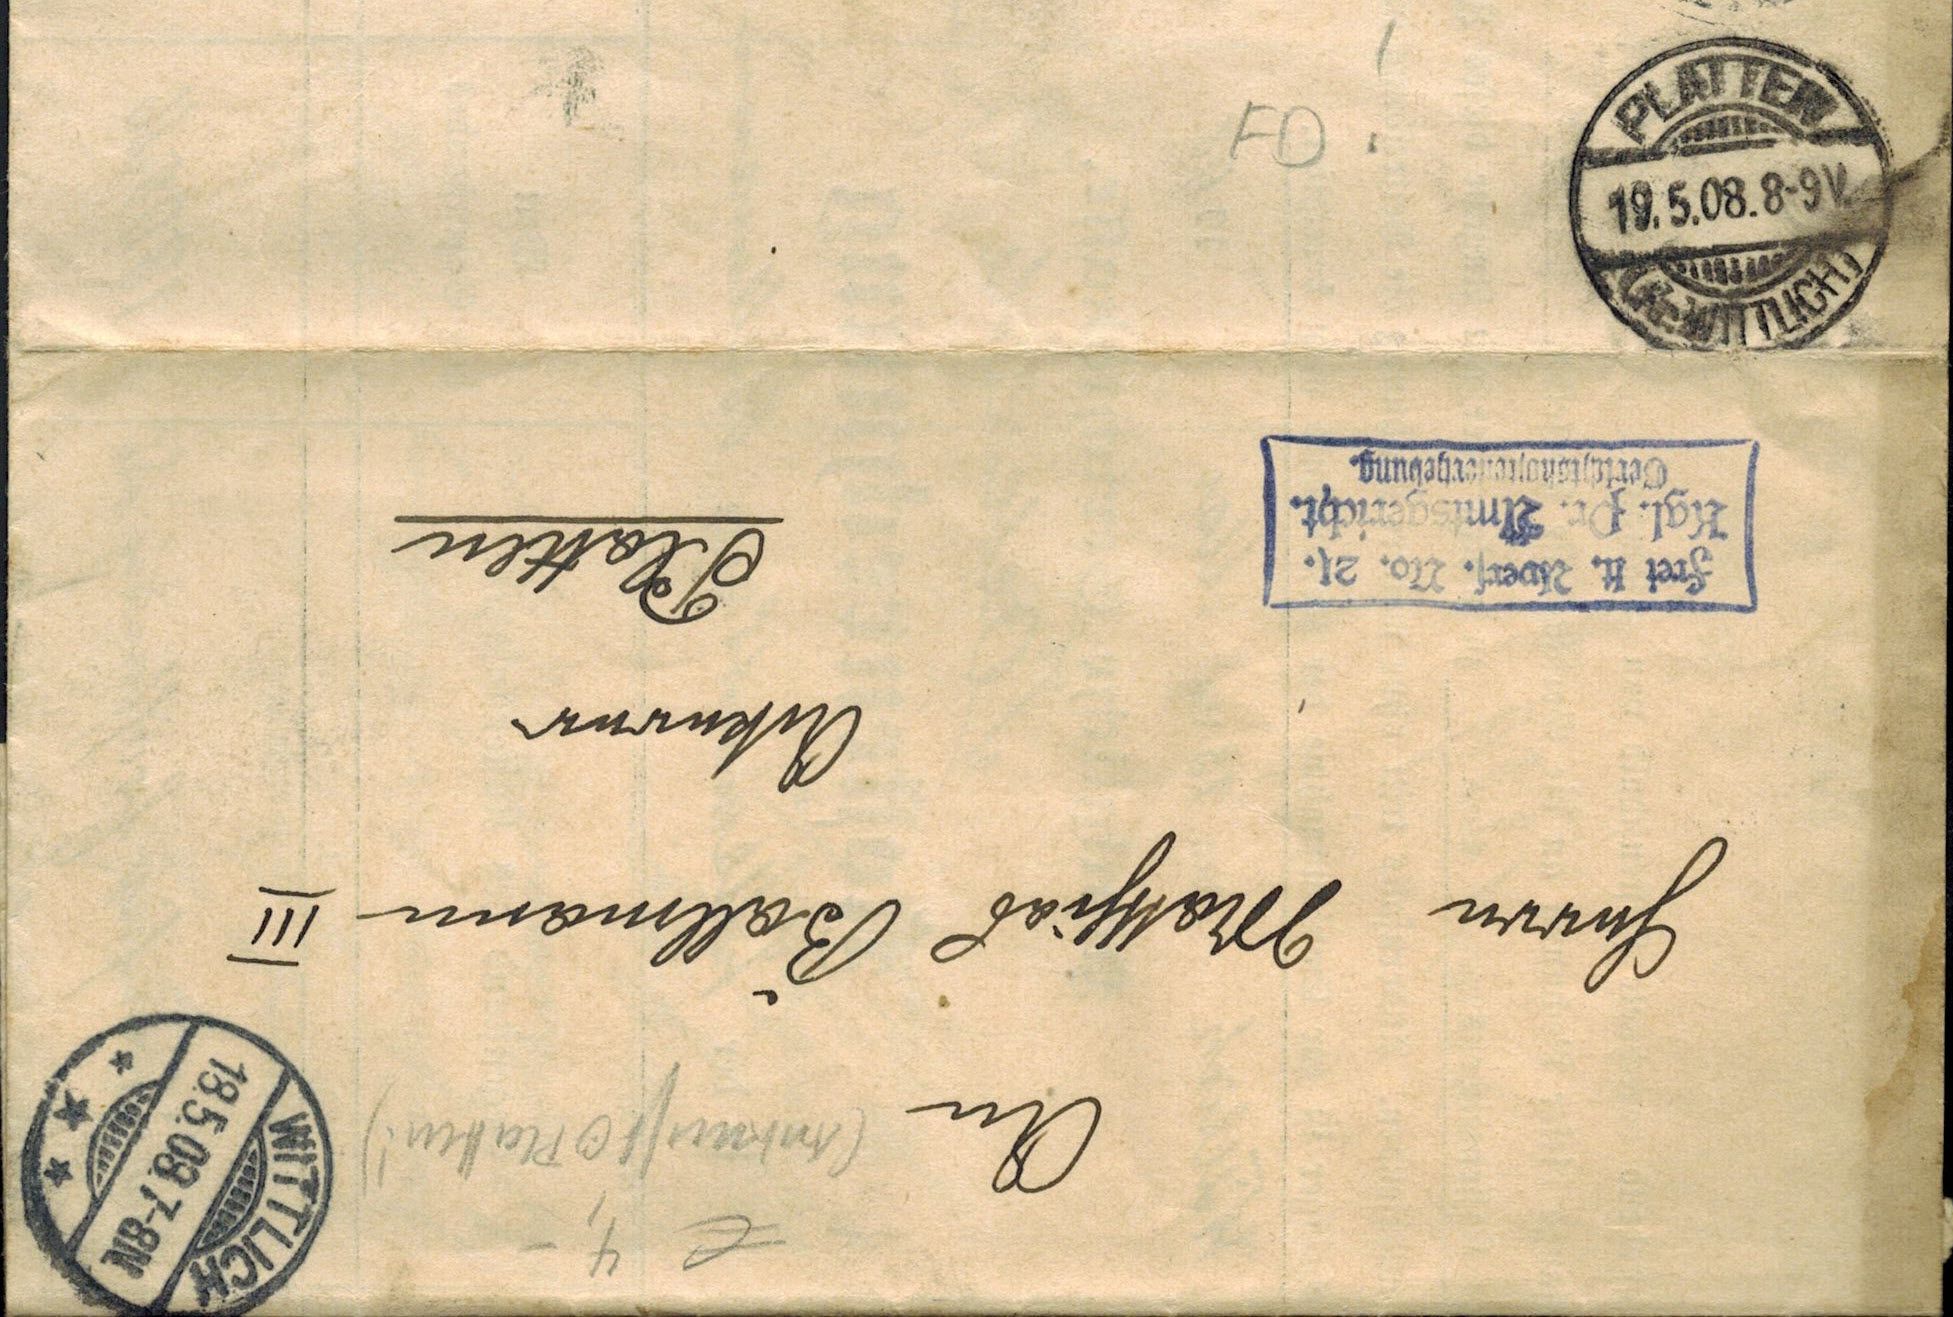 PLATTEN
19.5.08.8-9V.
(Kr. WITTLICH)
FD
WITTLICH
18.5.08.7-8N
(Ankunft Platten!)
€ 4,-
An
Herrn Matthias Bällmann III
Ackerer
Platten
Frei lt. Avers. No. 21.
Kgl. Pr. Amtsgericht.